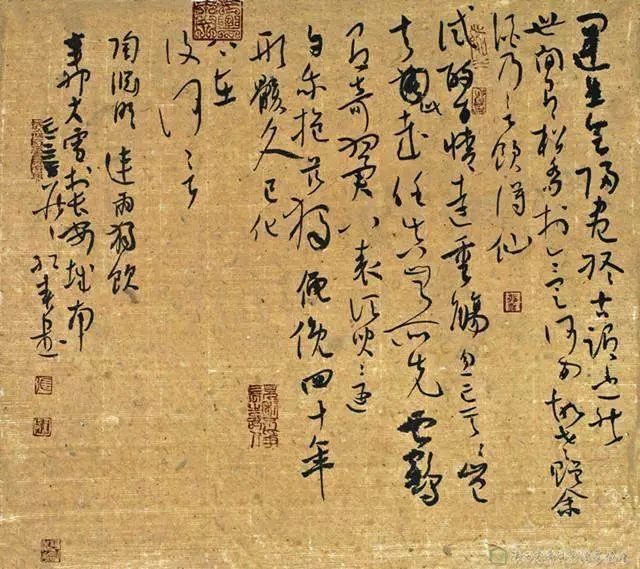 運生會歸盡終古謂之然
世間有松喬於今定何間故老贈余
酒乃言飲得仙
試酌百情遠重觴忽忘天々豈
去此哉任真無所先雲鶴
有奇翼八表須臾還
自我抱茲獨僶俛四十年
形骸久已化
心在
復何言
陶淵明連雨獨飲
辛卯大雪於長安城南